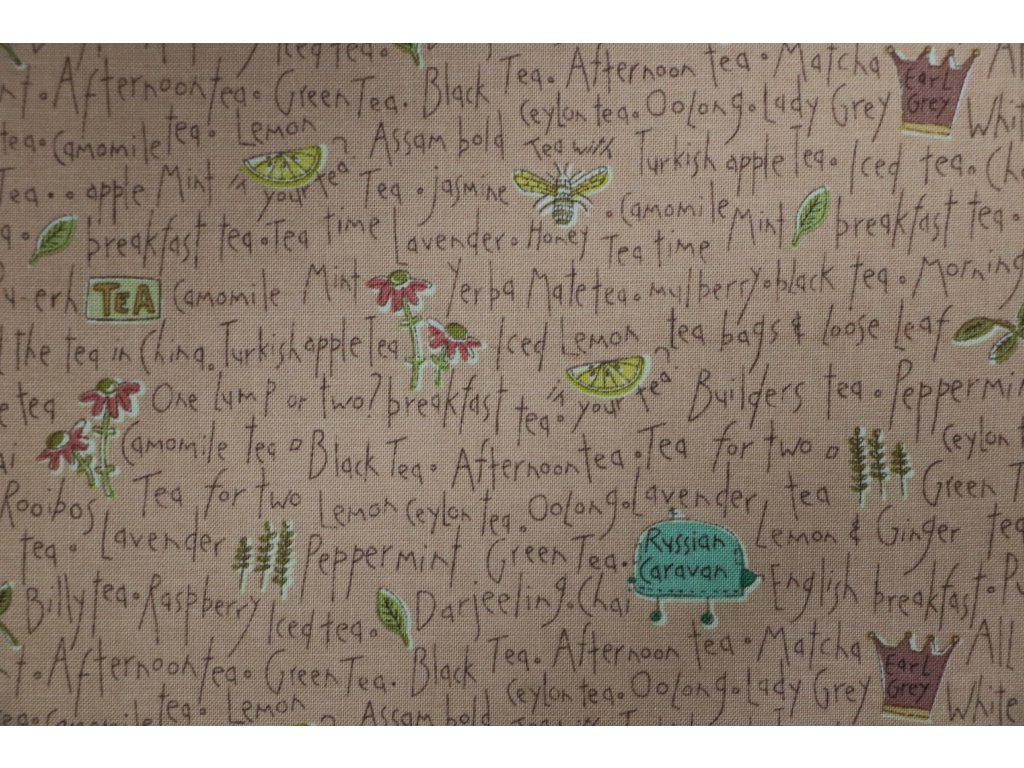 Iced tea.
Afternoon tea. Green Tea. Black Tea. Afternoon tea. Matcha Earl Grey All
tea. Camomile tea. Lemon Assam bold Ceylon tea. Oolong. Lady Grey White
Tea.. apple Mint in your tea? Tea. jasmine Tea with Turkish apple Tea. Iced tea.
breakfast tea. Tea time Lavender. Honey .Camomile Mint breakfast tea.
TEA Camomile Mint Yerba Mate tea. mulberry. black tea. Morning
Tea time
the tea in China. Turkish apple Tea Iced Lemon tea bags & loose leaf
tea One lump or two? breakfast tea. in your tea? Builders tea. Peppermin
Camomile tea Black Tea. Afternoon tea. Tea for two Ceylon
Rooibos Tea for two Lemon Ceylon tea. Oolong. Lavender tea Green
tea. Lavender Peppermint Green Tea. Russian Caravan Lemon & Ginger tea
Billy tea. Raspberry Iced tea. Darjeeling. Chai English breakfast.
Afternoon tea. Green Tea. Black Tea. Afternoon tea. Matcha Earl Grey All
tea. Lemon Assam bold Ceylon tea. Oolong. Lady Grey White